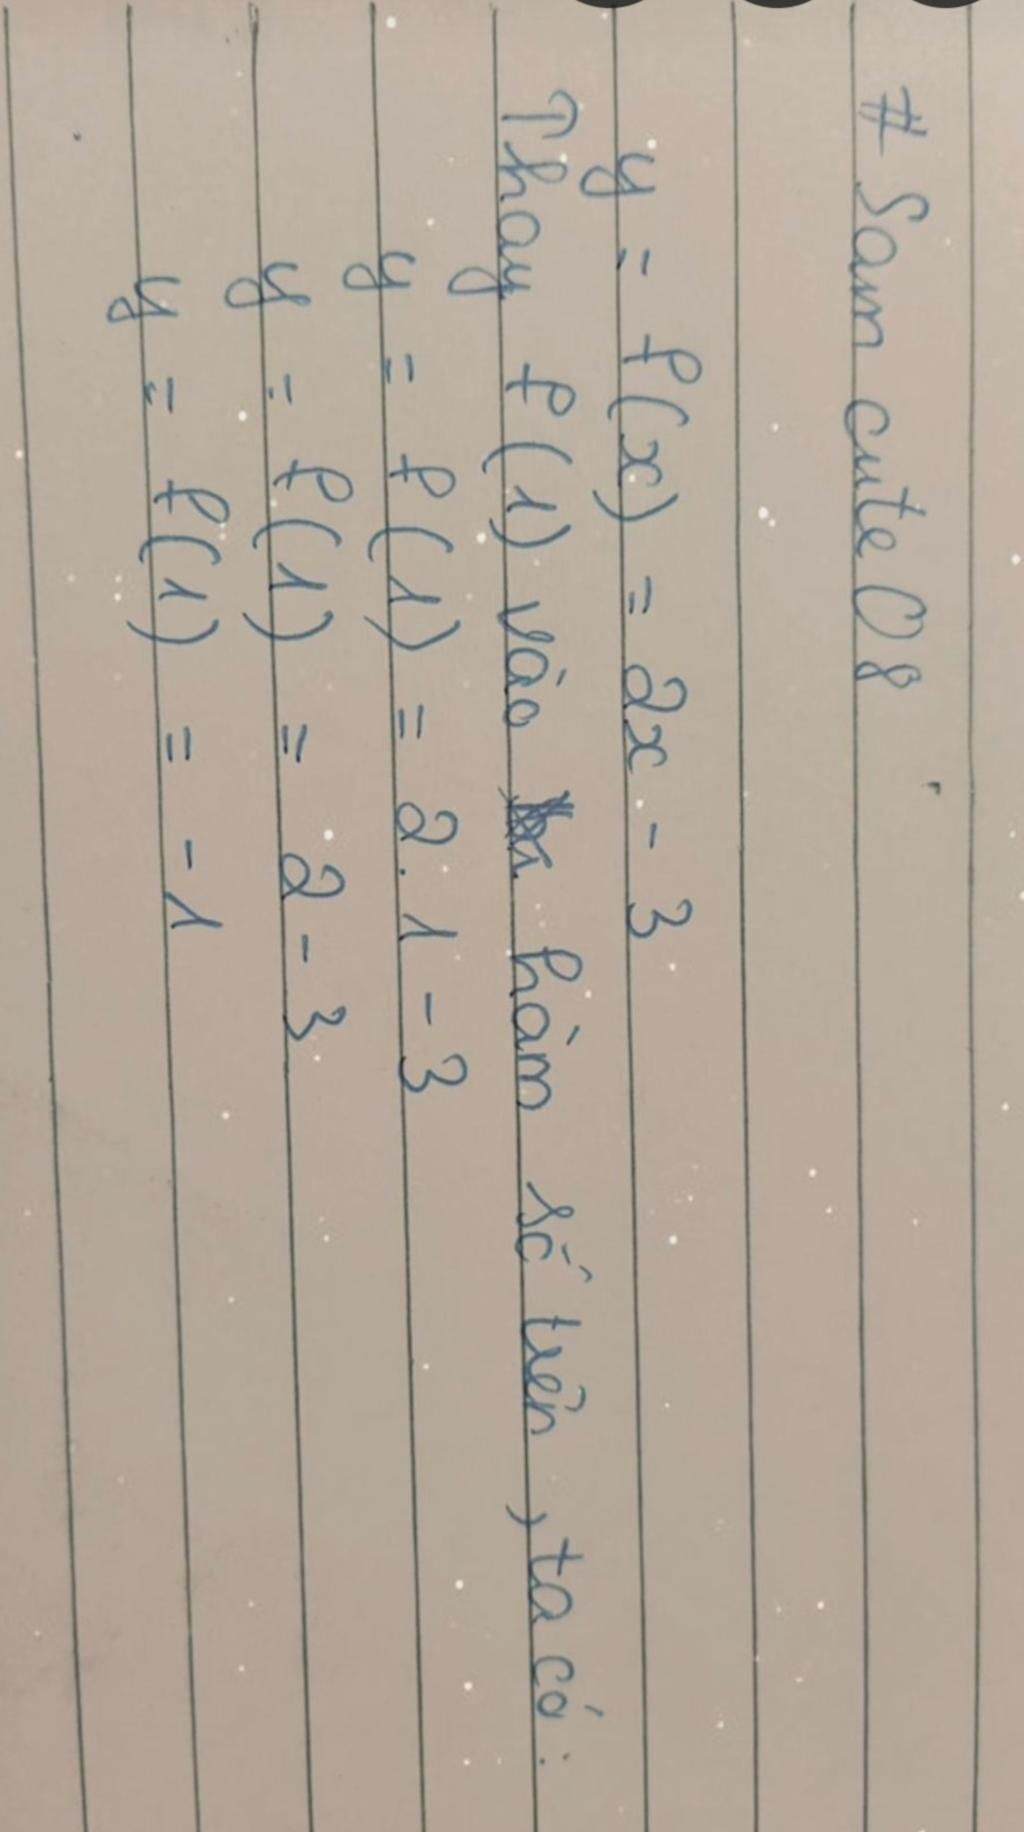 # Sam cute08
y = f(x) = 2x - 3
Thay f(1) vào hàm số trên, ta có:
y = f(1) = 2.1 - 3
y = f(1) = 2 - 3
y = f(1) = -1